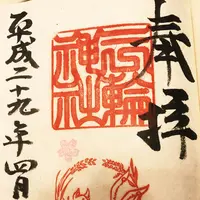 奉拝
三輪神社
平成二十九年四月